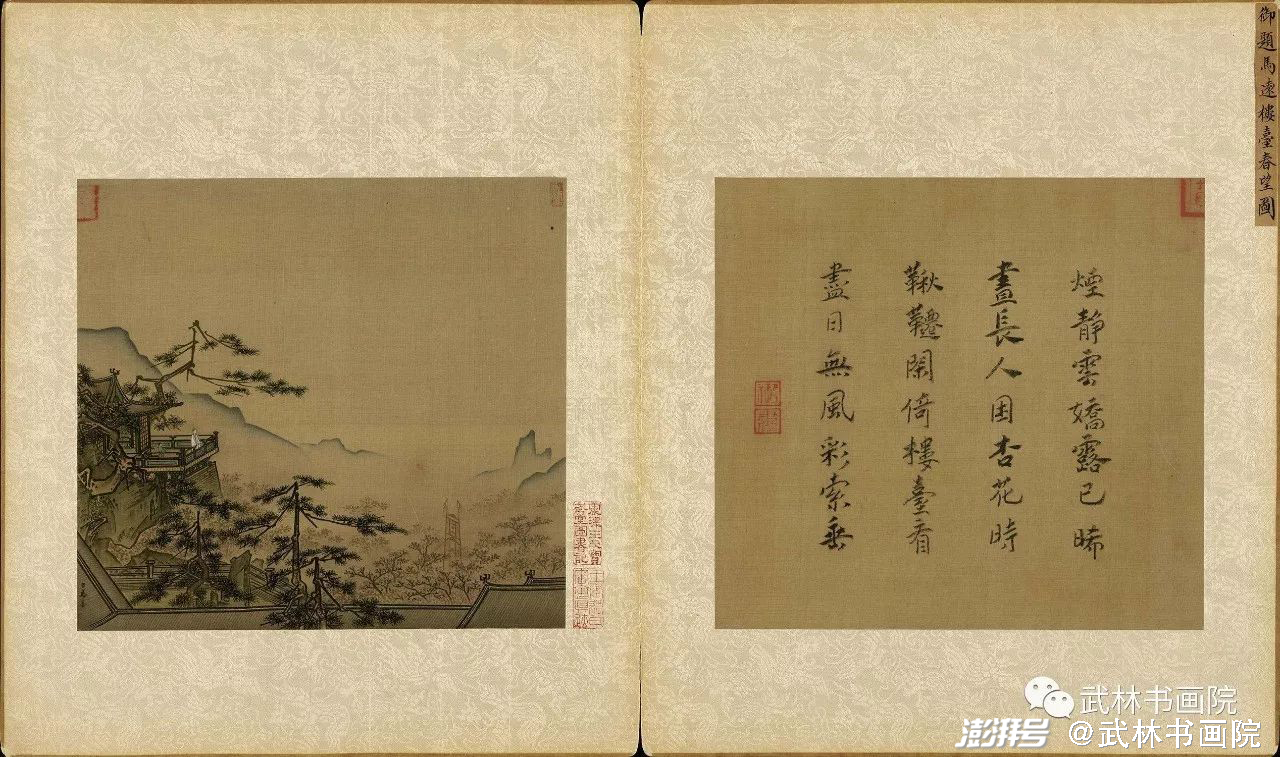 御題馬遠樓臺春望圖
煙靜雲嬌露已晞
晝長人困杏花時
鞦韆閑倚樓臺看
盡日無風彩索垂
武林书画院
澎湃号 @武林书画院